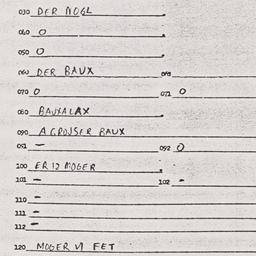 030 DER MOGL
040 O
050 O
060 DER BAUX 061
070 O 071 O
080 BAUXALAX
090 A GROJSER BAUX
091 — 092 O
100 ER IZ MOGER
101 — 102 —
110 —
111 —
112 —
120 MOGER VI FET